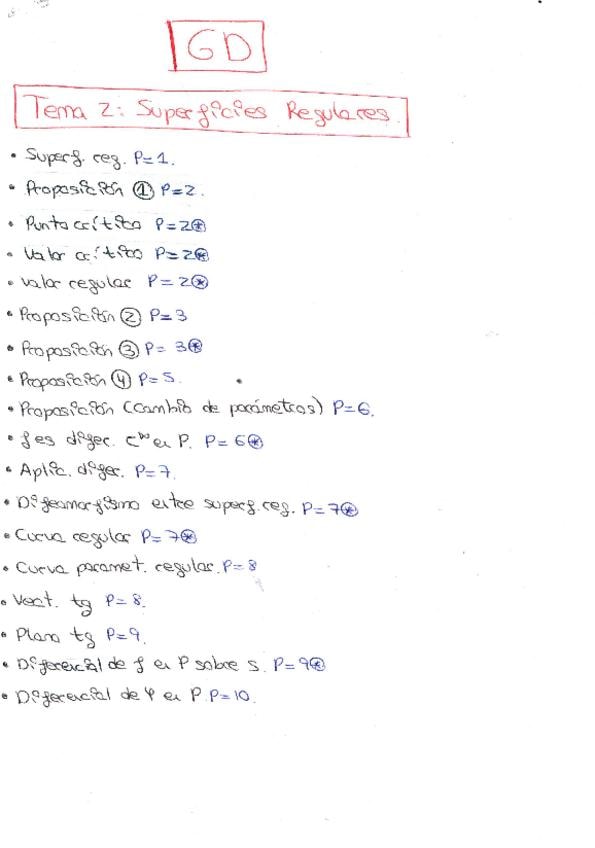 GD
Tema 2: Superficies Regulares.
• Superf. reg. P=1.
• Proposición ① P=2.
• Punto crítico P=2⊛
• Valor crítico P=2⊛
• Valor regular P=2⊛
• Proposición ② P=3
• Proposición ③ P=3⊛
• Proposición ④ P=5.
• Proposición (Cambio de parámetros) P=6.
• f es difer. C^∞ en P. P=6⊛
• Aplic. difer. P=7.
• Difeomorfismo entre superf. reg. P=7⊛
• Curva regular P=7⊛
• Curva paramet. regular. P=8
• Vect. tg P=8.
• Plano tg P=9.
• Diferencial de f en P sobre S. P=9⊛
• Diferencial de φ en P. P=10.